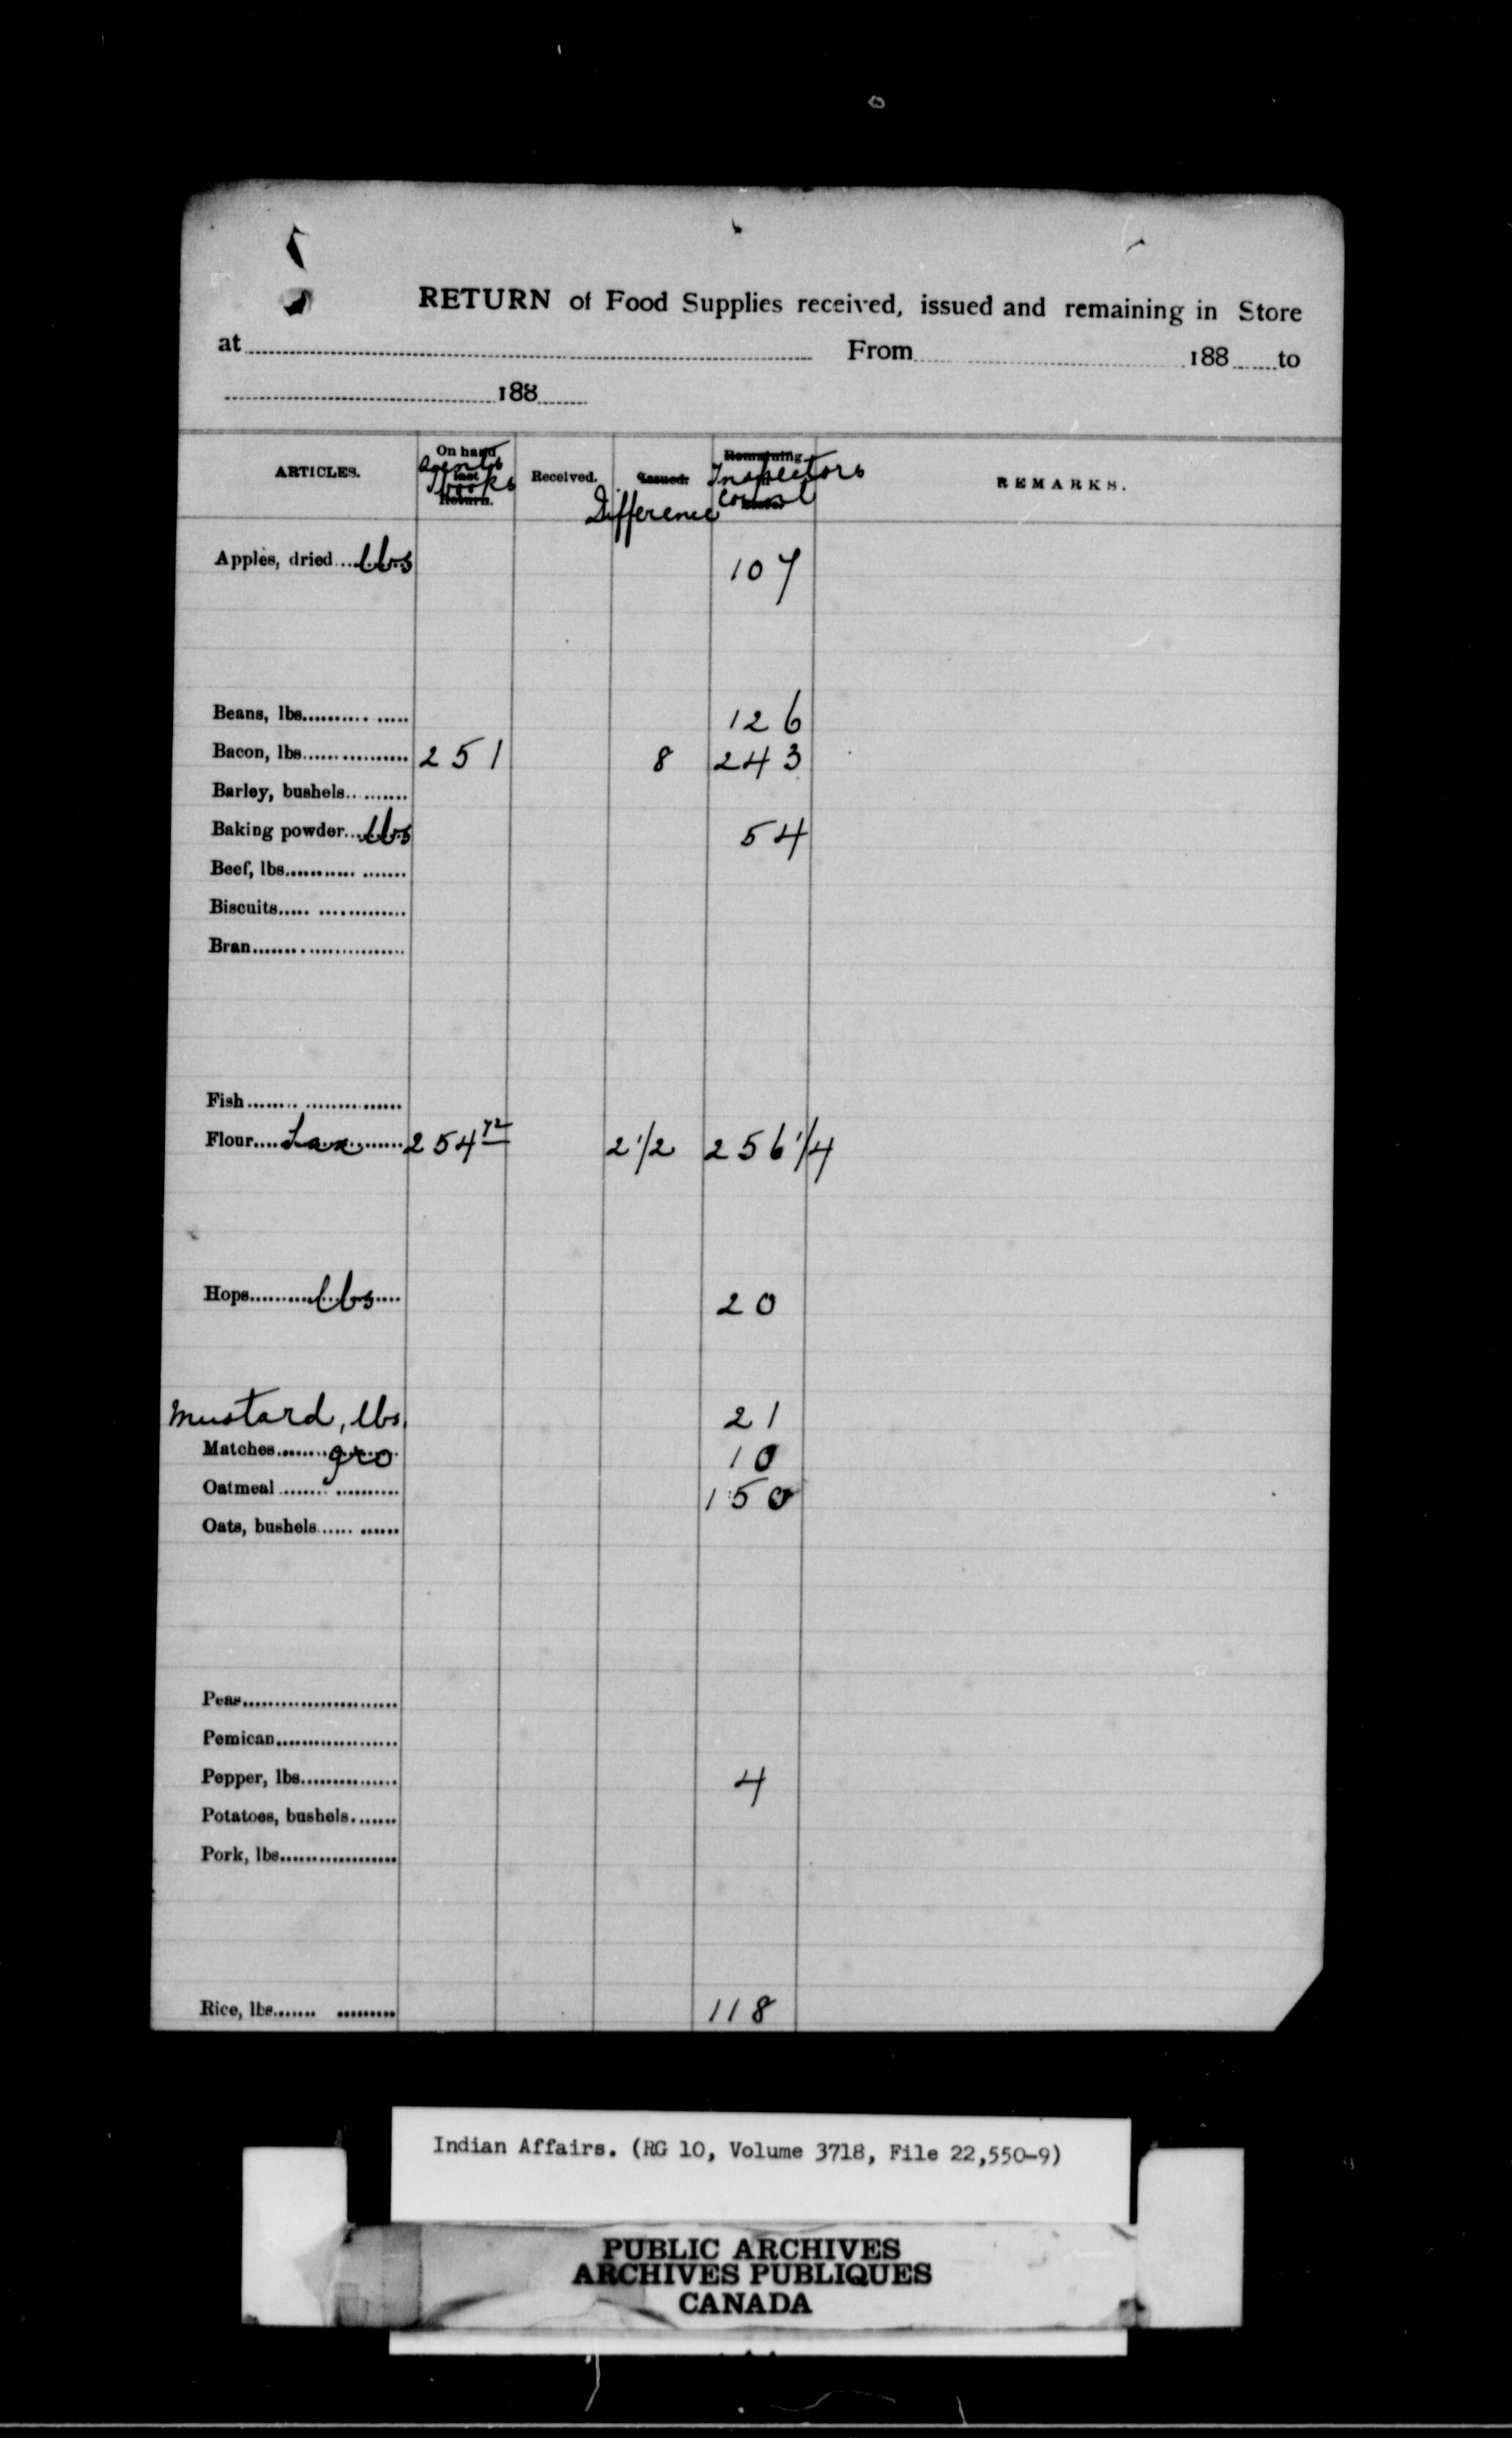 RETURN of Food Supplies received, issued and remaining in Store
at From 188 to
188
ARTICLES. On hand last Return. Agents books Received. Issued. Difference Remaining Inspectors count REMARKS.
Apples, dried lbs 107
Beans, lbs 126
Bacon, lbs 251 8 243
Barley, bushels
Baking powder lbs 54
Beef, lbs
Biscuits
Bran
Fish
Flour Sax 254 72 2 1/2 256 1/4
Hops lbs 20
Mustard, lbs. 21
Matches gro 10
Oatmeal 150
Oats, bushels
Peas
Pemican
Pepper, lbs 4
Potatoes, bushels
Pork, lbs
Rice, lbs 118
Indian Affairs. (RG 10, Volume 3718, File 22,550-9)
PUBLIC ARCHIVES
ARCHIVES PUBLIQUES
CANADA